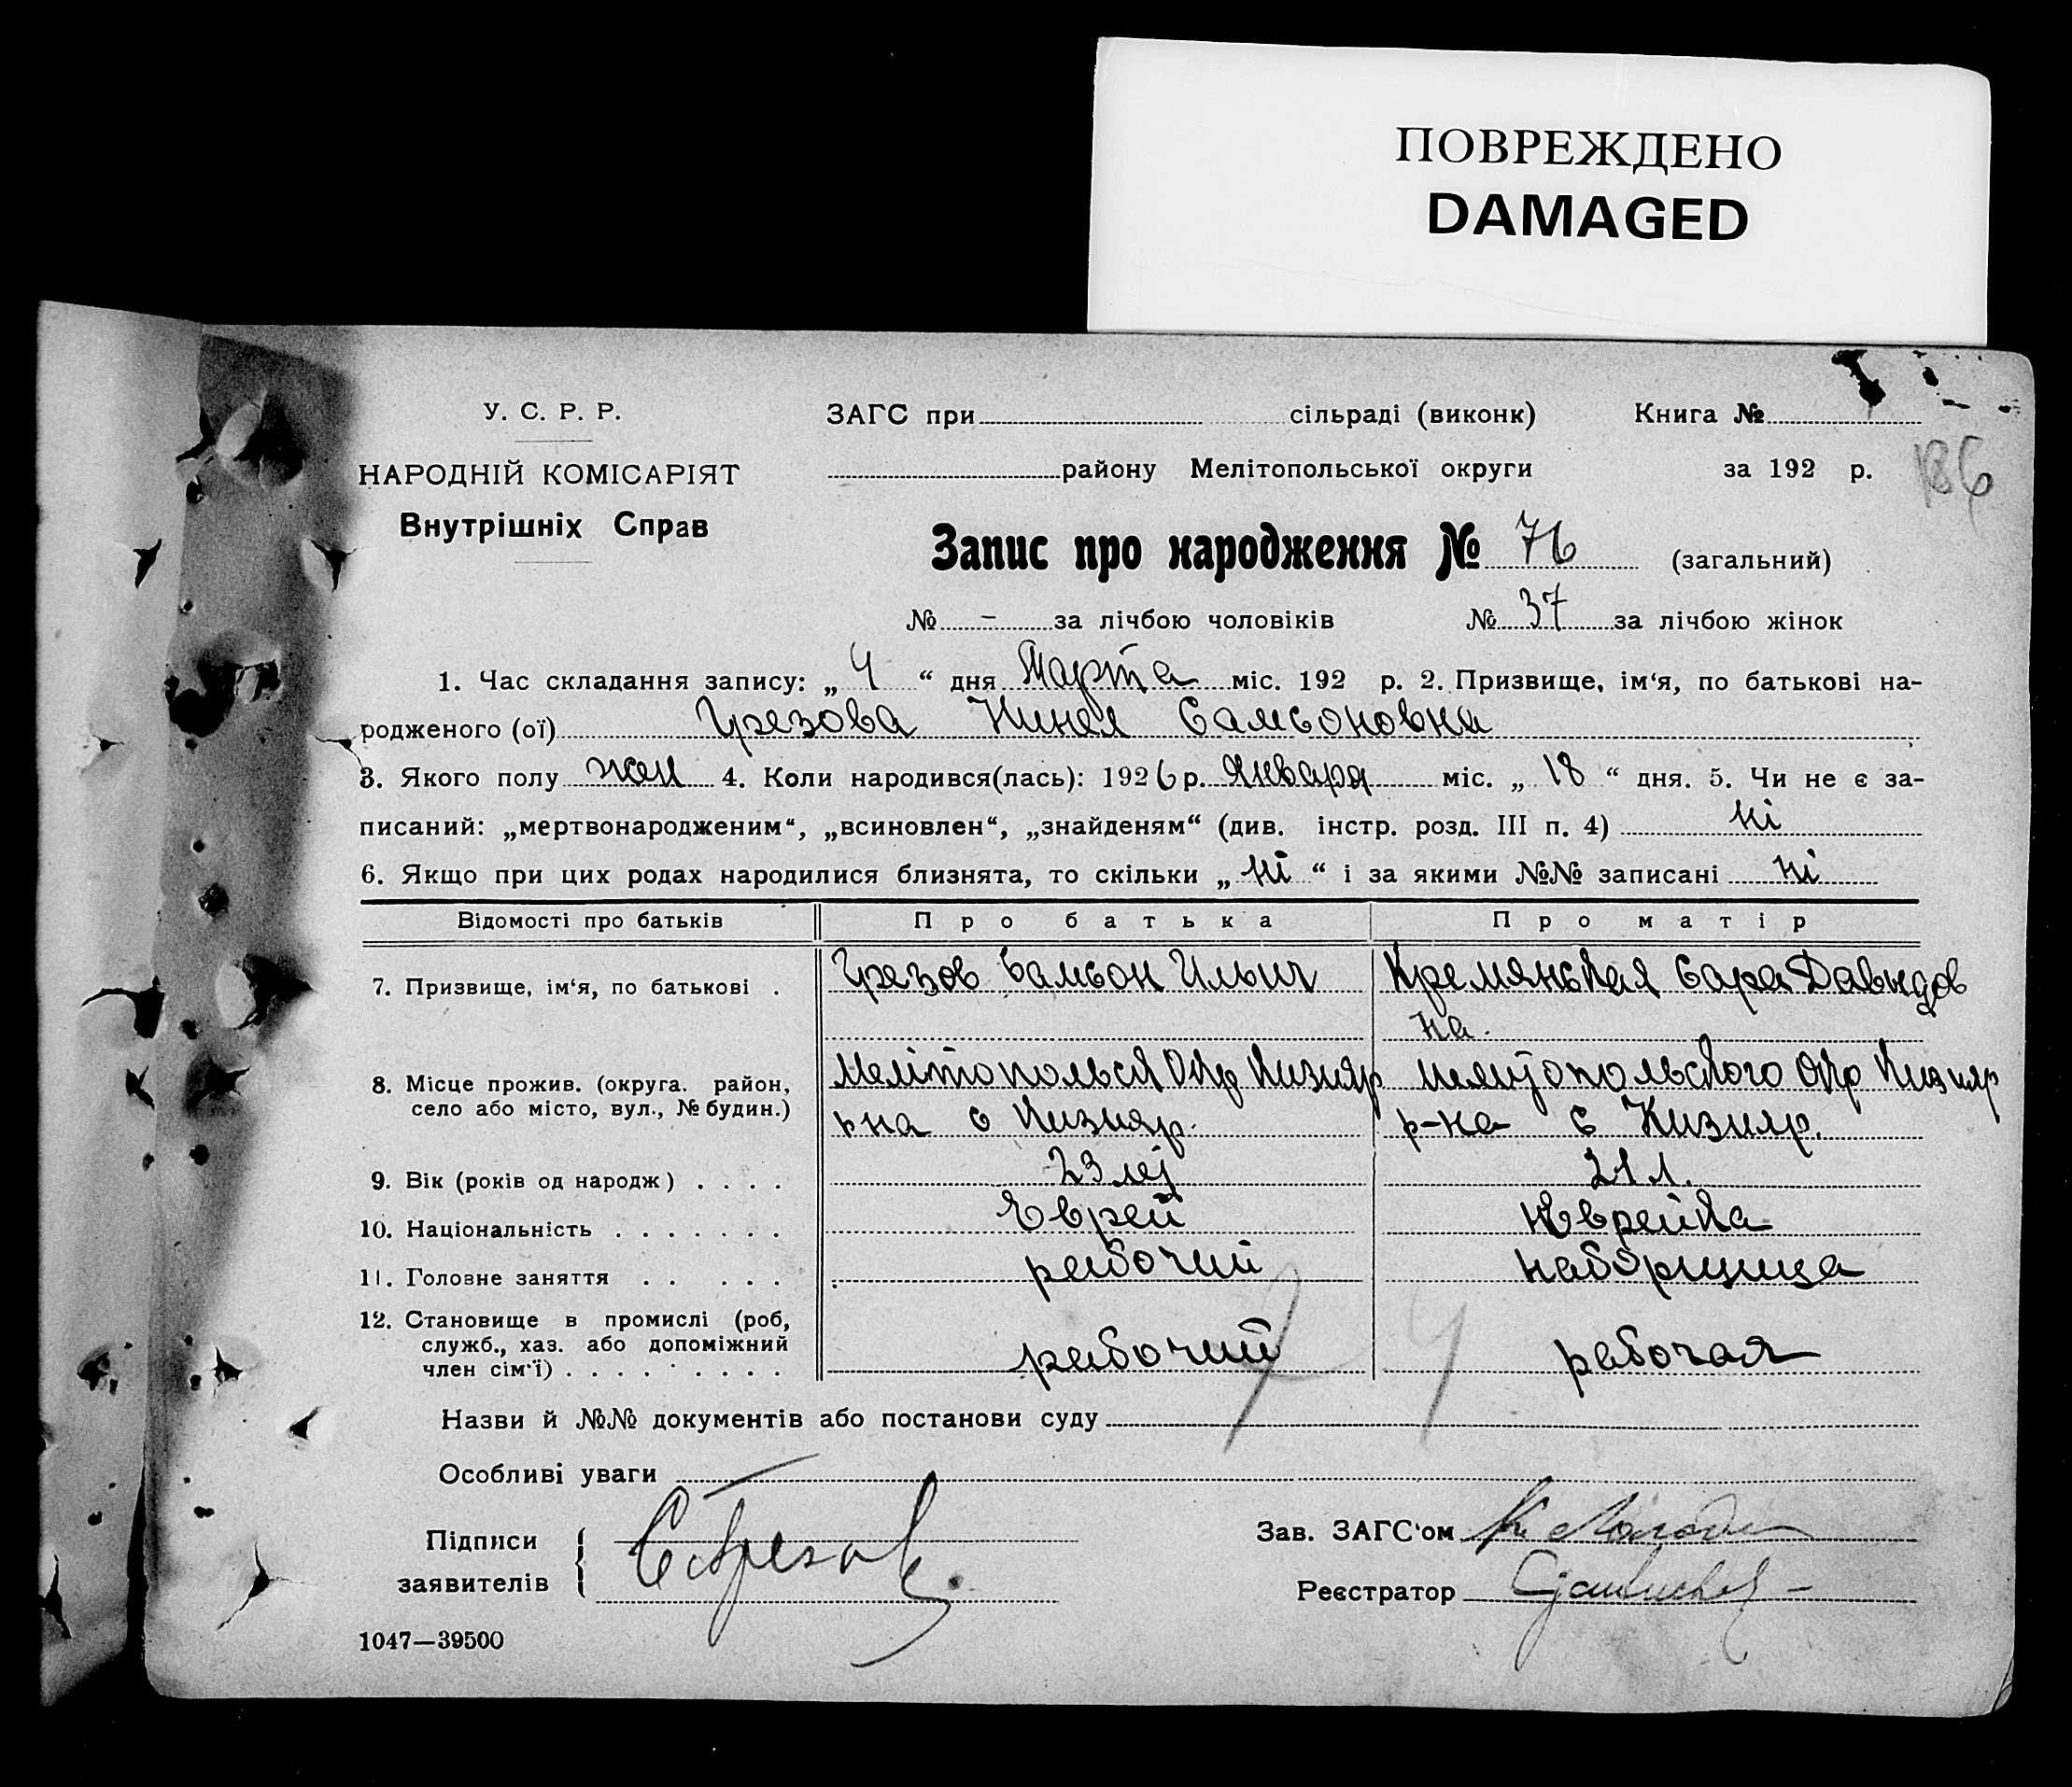 ПОВРЕЖДЕНО
DAMAGED
У. С. Р. Р.
НАРОДНІЙ КОМІСАРІЯТ
Внутрішніх Справ
ЗАГС при сільраді (виконк) Книга №
району Мелітопольської округи за 192 р. 186
Запис про народження № 76 (загальний)
№ - за лічбою чоловіків № 37 за лічбою жінок
1. Час складання запису: „ 4 “ дня Марта міс. 192 р. 2. Призвище, ім‘я, по батькові на-
родженого (ої) Грезова Нинел Самсоновна
3. Якого полу жен 4. Коли народився(лась): 1926 р. Января міс. „ 18 “ дня. 5. Чи не є за-
писаний: „мертвонародженим“, „всиновлен“, „знайденям“ (див. інстр. розд. III п. 4) ні
6. Якщо при цих родах народилися близнята, то скільки „ ні “ і за якими №№ записані ні
Відомості про батьків Про батька Про матір
7. Призвище, ім‘я, по батькові . Грезов Самсон Ильич Кремянская Сара Давыдов
на.
8. Місце прожив. (округа. район, Мелітопольск Окр Кизияр Мелитопольского Окр Кизияр
село або місто, вул., № будин.) рна с Кизияр. р-на с Кизияр.
9. Вік (років од народж) . . . . 23 лет 21 л.
10. Національність . . . . . . . Еврей Еврейка
11. Головне заняття . . . . . рабочий наборщица
12. Становище в промислі (роб,
служб., хаз. або допоміжний рабочий рабочая
член сім‘ї) . . . . . . . .
Назви й №№ документів або постанови суду
Особливі уваги
Підписи
заявителів
Зав. ЗАГС‘ом
Реєстратор
1047—39500